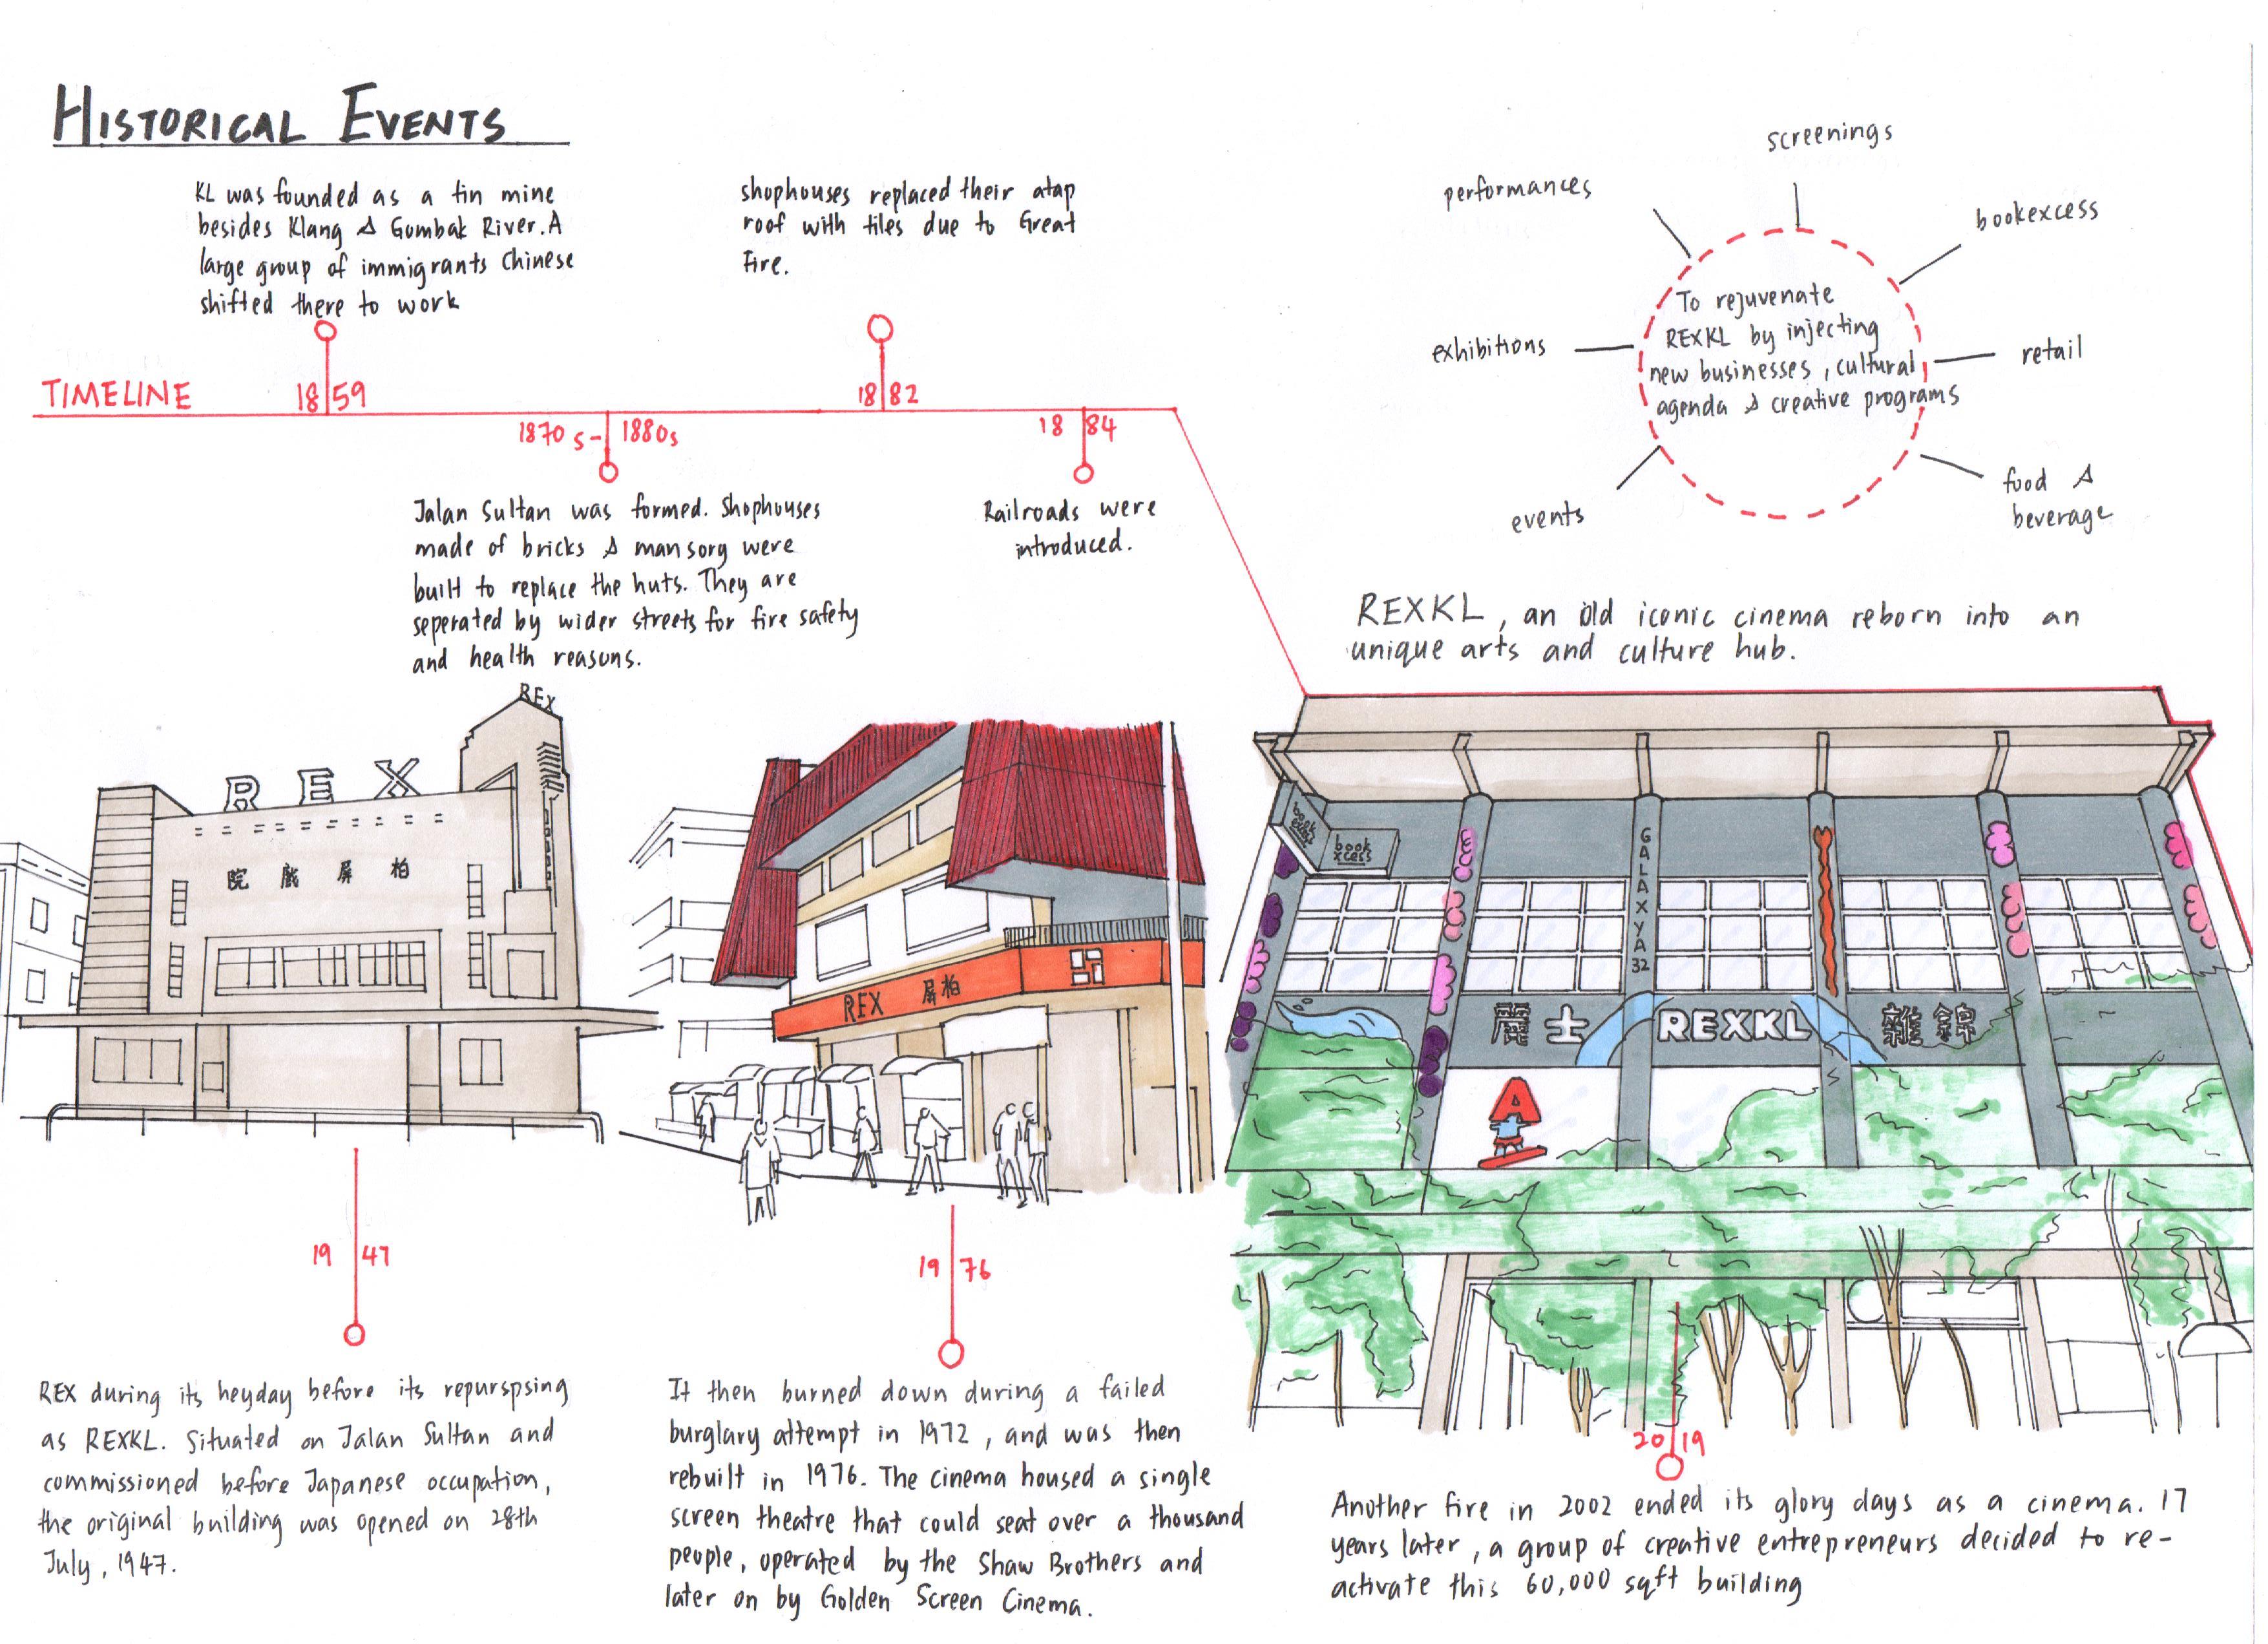 HISTORICAL EVENTS
KL was founded as a tin mine
besides Klang & Gombak River. A
large group of immigrants Chinese
shifted there to work
shophouses replaced their atap
roof with tiles due to Great
Fire.
TIMELINE
1859
1882
1870s-1880s
1884
Jalan Sultan was formed. Shophouses
made of bricks & mansory were
built to replace the huts. They are
seperated by wider streets for fire safety
and health reasons.
Railroads were
introduced.
screenings
performances
bookexcess
exhibitions
retail
events
food &
beverage
To rejuvenate
REXKL by injecting
new businesses, cultural
agenda & creative programs
REXKL, an old iconic cinema reborn into an
unique arts and culture hub.
REX
REX
院戲屏柏
REX 屏柏
book
excess
book
xcess
GALAXYA32
麗士 REXKL 雜錦
A
1947
REX during its heyday before its repurspsing
as REXKL. Situated on Jalan Sultan and
commissioned before Japanese occupation,
the original building was opened on 28th
July, 1947.
1976
It then burned down during a failed
burglary attempt in 1972, and was then
rebuilt in 1976. The cinema housed a single
screen theatre that could seat over a thousand
people, operated by the Shaw Brothers and
later on by Golden Screen Cinema.
2019
Another fire in 2002 ended its glory days as a cinema. 17
years later, a group of creative entrepreneurs decided to re-
activate this 60,000 sqft building